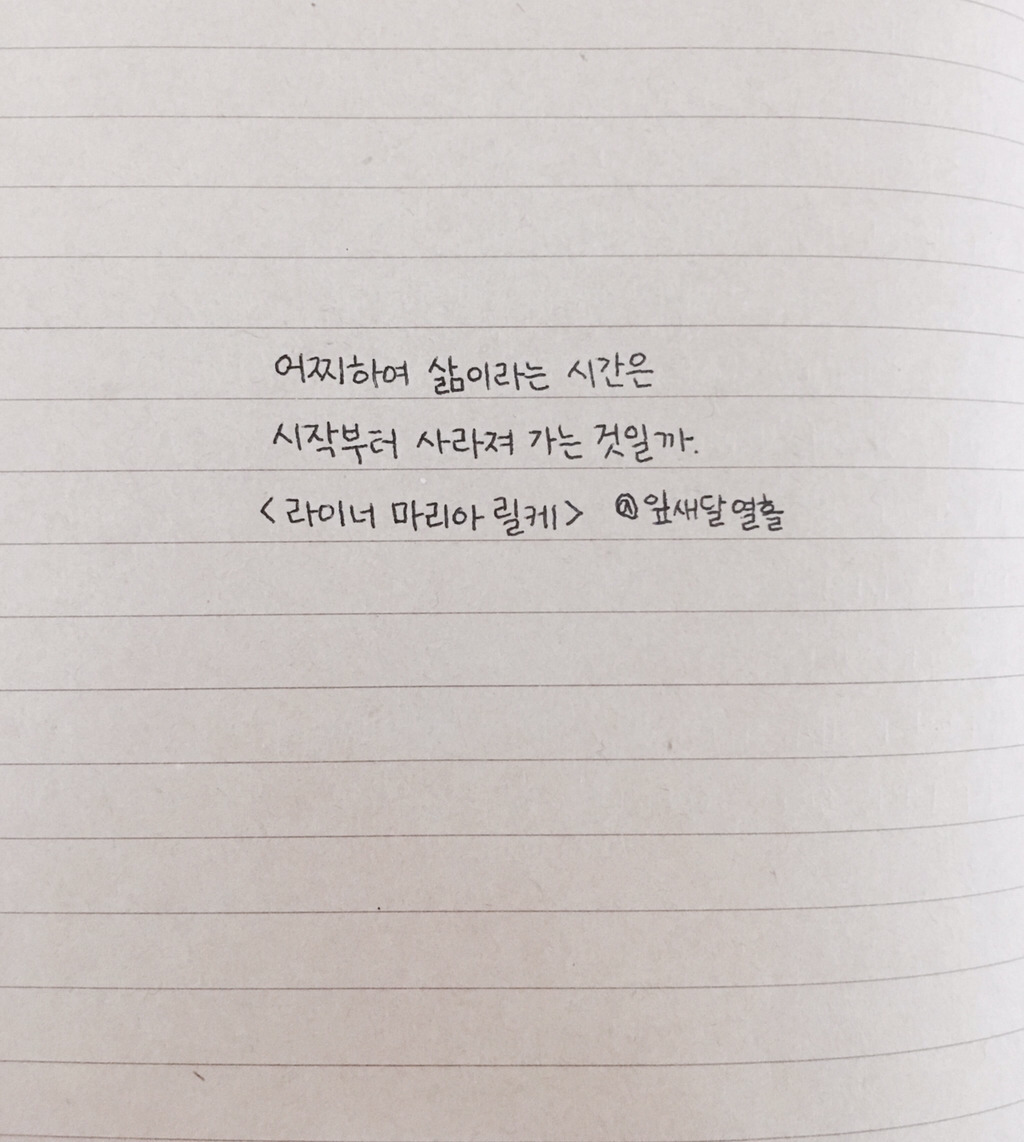 어찌하여 삶이라는 시간은
시작부터 사라져 가는 것일까.
<라이너 마리아 릴케> @앞새달열흘